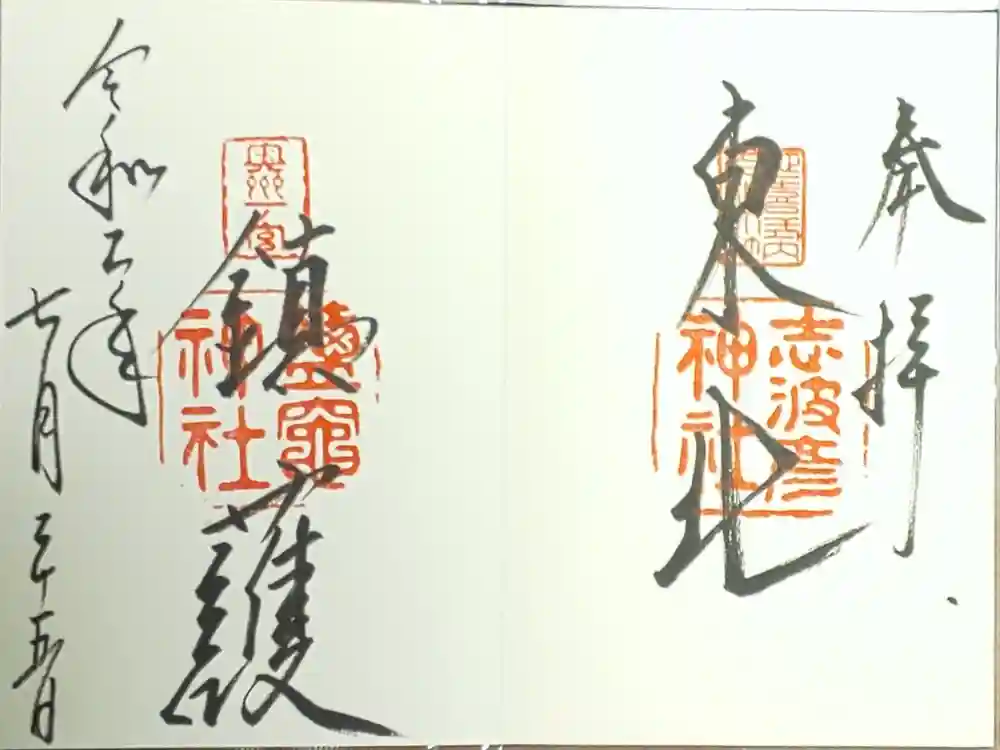 奉拝
東北
志波彦
神社
鎮護
奥州
一宮
鹽竈
神社
令和二年
七月二十五日